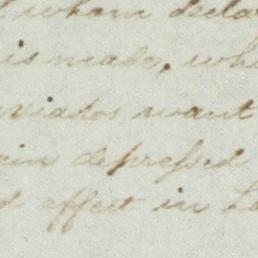 whom decla
is made, wh
viados want
ein depressed
d effect in Le